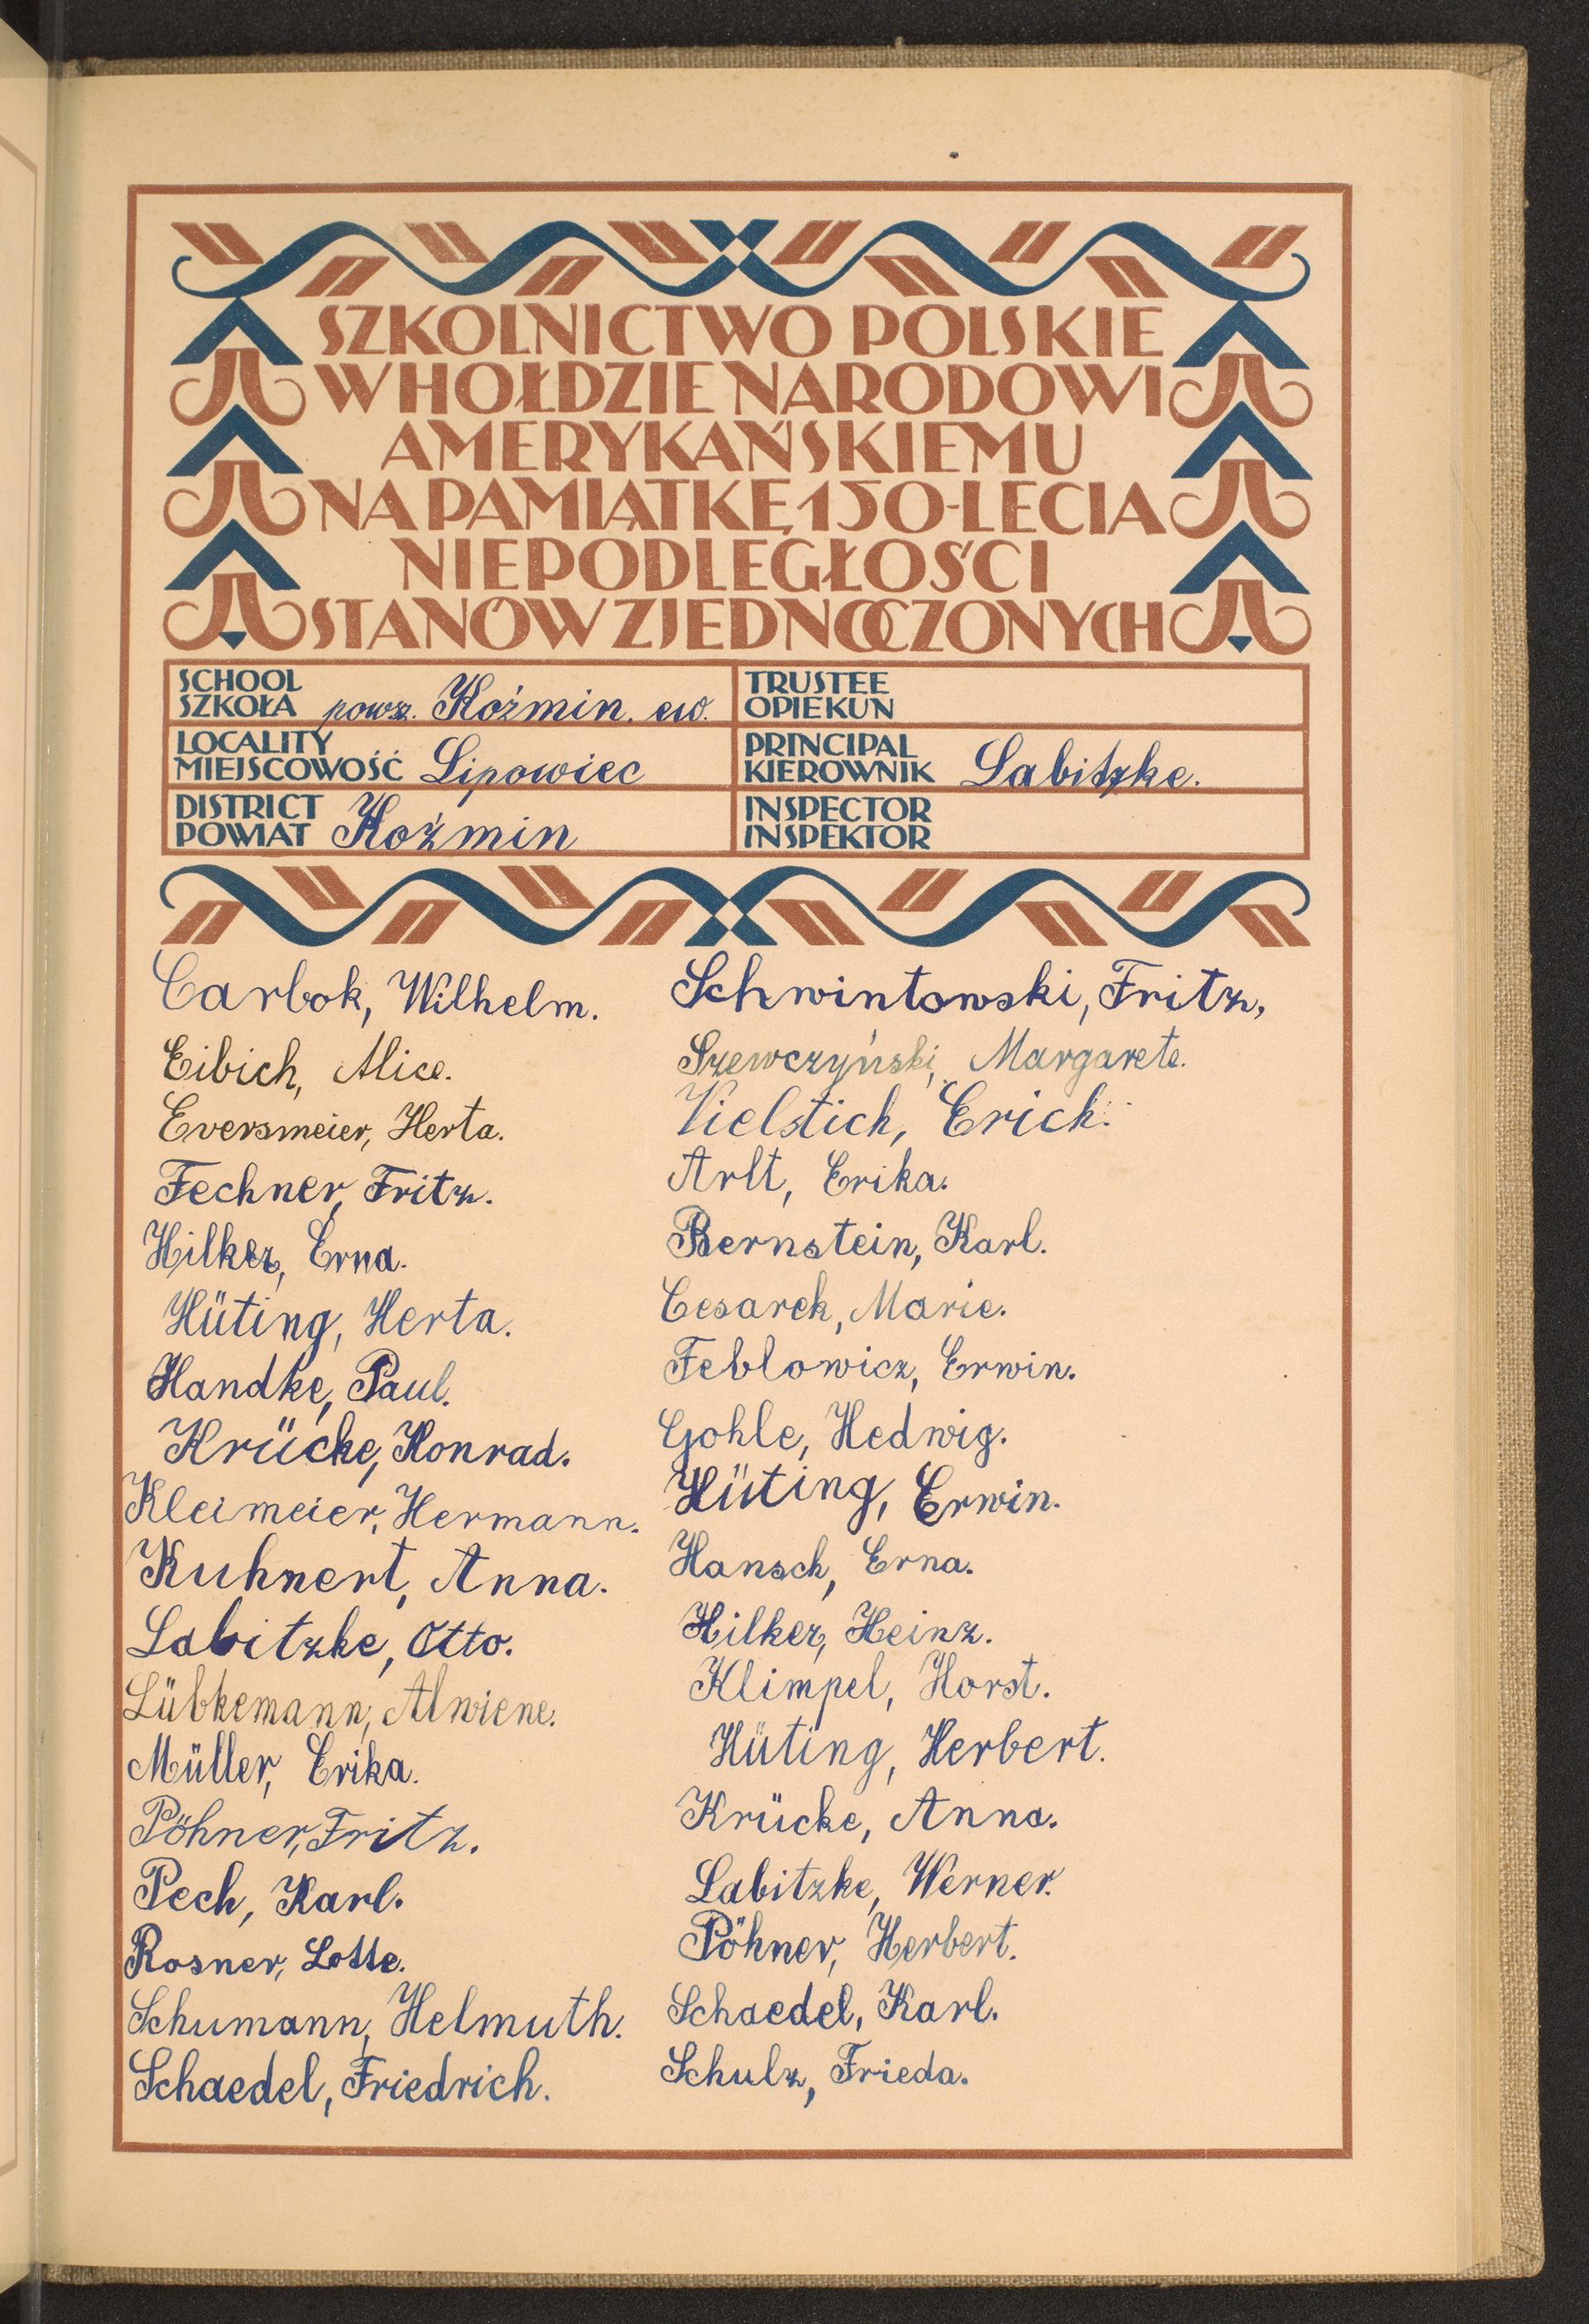 SZKOLNICTWO POLSKIE
W HOŁDZIE NARODOWI
AMERYKAŃSKIEMU
NA PAMIĄTKĘ 150-LECIA
NIEPODLEGŁOŚCI
STANÓW ZJEDNOCZONYCH
SCHOOL
SZKOŁA powsz. Koźmin. ew.
TRUSTEE
OPIEKUN
LOCALITY
MIEJSCOWOŚĆ Lipowiec
PRINCIPAL
KIEROWNIK Labitzke.
DISTRICT
POWIAT Koźmin
INSPECTOR
INSPEKTOR
Carbok, Wilhelm.
Eibich, Alice.
Eversmeier, Herta.
Fechner, Fritz.
Hilker, Erna.
Hüting, Herta.
Handke, Paul.
Krücke, Konrad.
Kleimeier, Hermann.
Kuhnert, Anna.
Labitzke, Otto.
Lübkemann, Alwiene.
Müller, Erika.
Pöhner, Fritz.
Pech, Karl.
Rosner, Lotte.
Schumann, Helmuth.
Schaedel, Friedrich.
Schwintowski, Fritz,
Szewczyński, Margarete.
Vielstich, Erich.
Arlt, Erika.
Bernstein, Karl.
Cesarek, Marie.
Feblowicz, Erwin.
Gohle, Hedwig.
Hüting, Erwin.
Hansch, Erna.
Hilker, Heinz.
Klimpel, Horst.
Hüting, Herbert.
Krücke, Anna.
Labitzke, Werner.
Pöhner, Herbert.
Schaedel, Karl.
Schulz, Frieda.